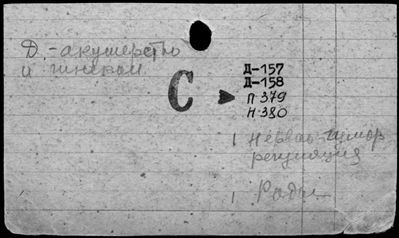 Д.-акушерство
и гинекол
С
Д-157
Д-158
П 379
Н-380
1 Нервная-гумор
регуляция
1 Роды